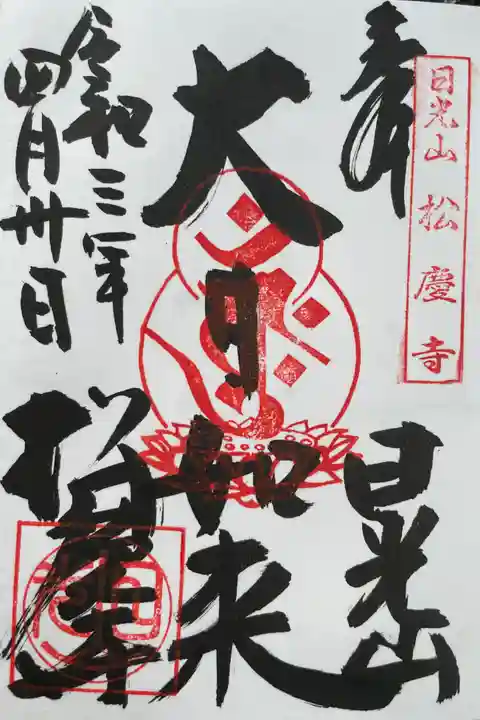 日光山 松慶寺
奉 日光山
大日如来
令和三年
四月卅日
松慶寺